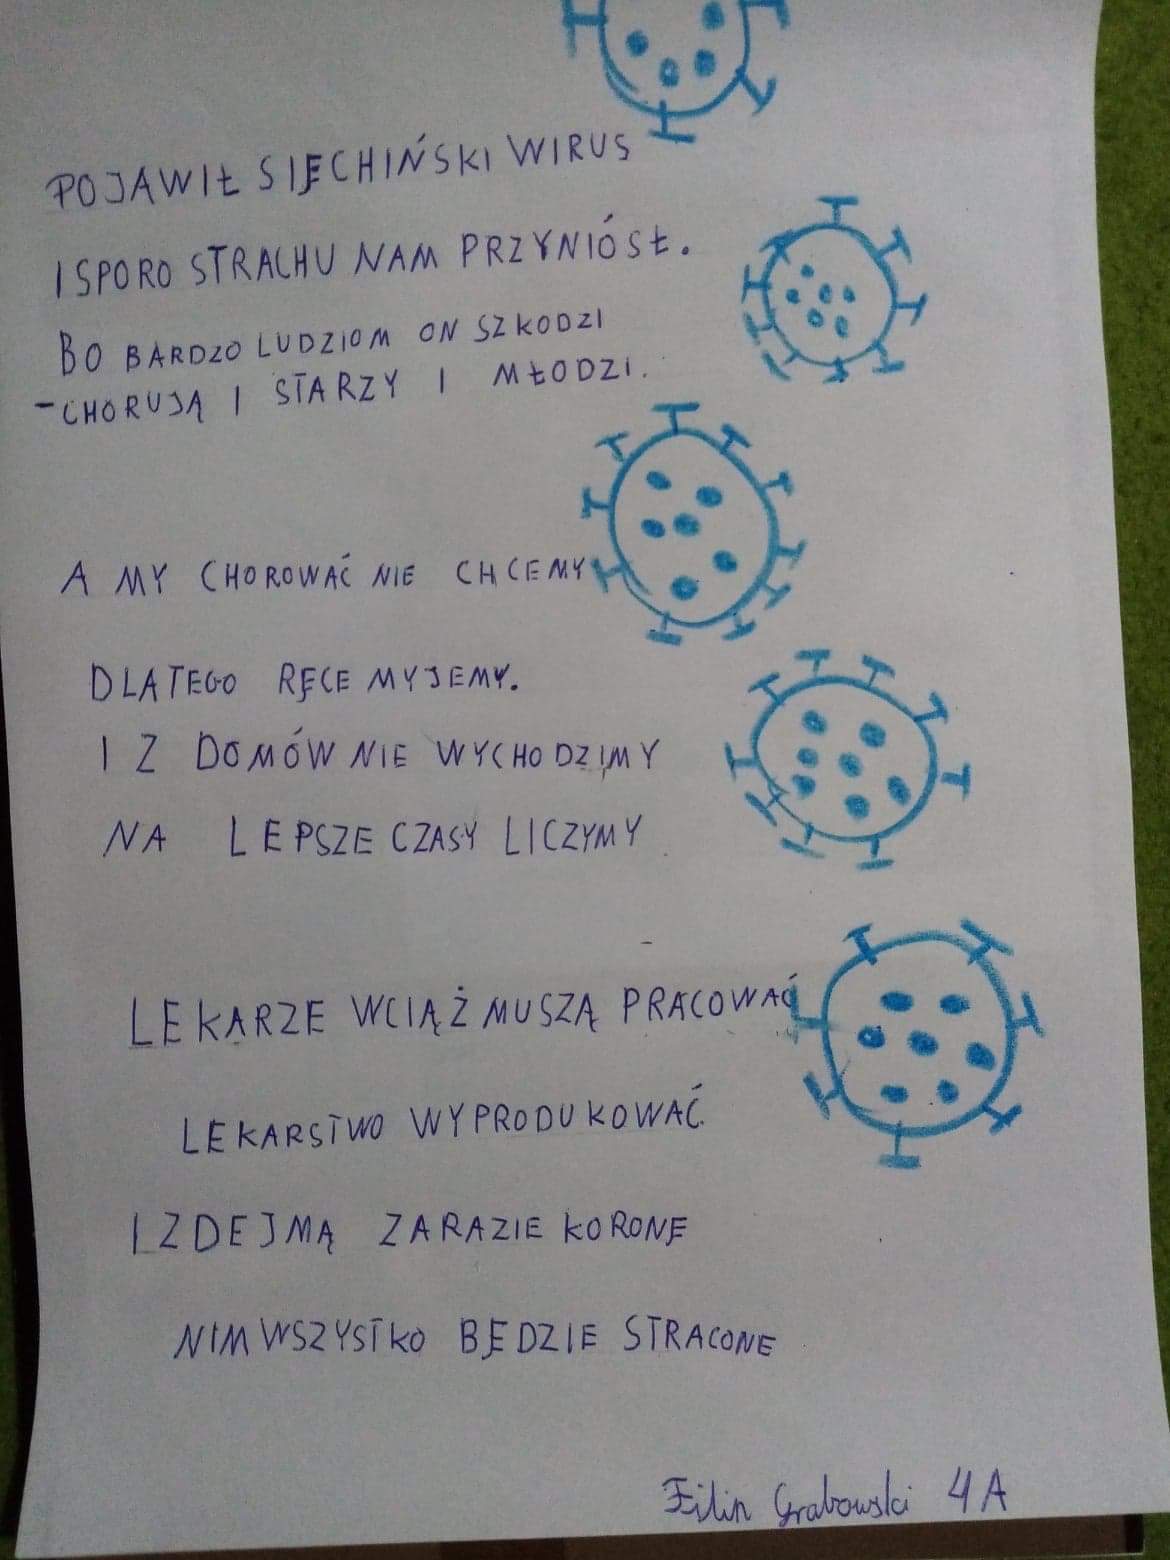 POJAWIŁ SIĘ CHIŃSKI WIRUS
I SPORO STRACHU NAM PRZYNIÓSŁ.
BO BARDZO LUDZIOM ON SZKODZI
- CHORUJĄ I STARZY I MŁODZI.
A MY CHOROWAĆ NIE CHCEMY
DLATEGO RĘCE MYJEMY.
I Z DOMÓW NIE WYCHODZIMY
NA LEPSZE CZASY LICZYMY
LEKARZE WCIĄŻ MUSZĄ PRACOWAĆ
LEKARSTWO WYPRODUKOWAĆ.
I ZDEJMĄ ZARAZIE KORONĘ
NIM WSZYSTKO BĘDZIE STRACONE
Filip Grabowski 4A